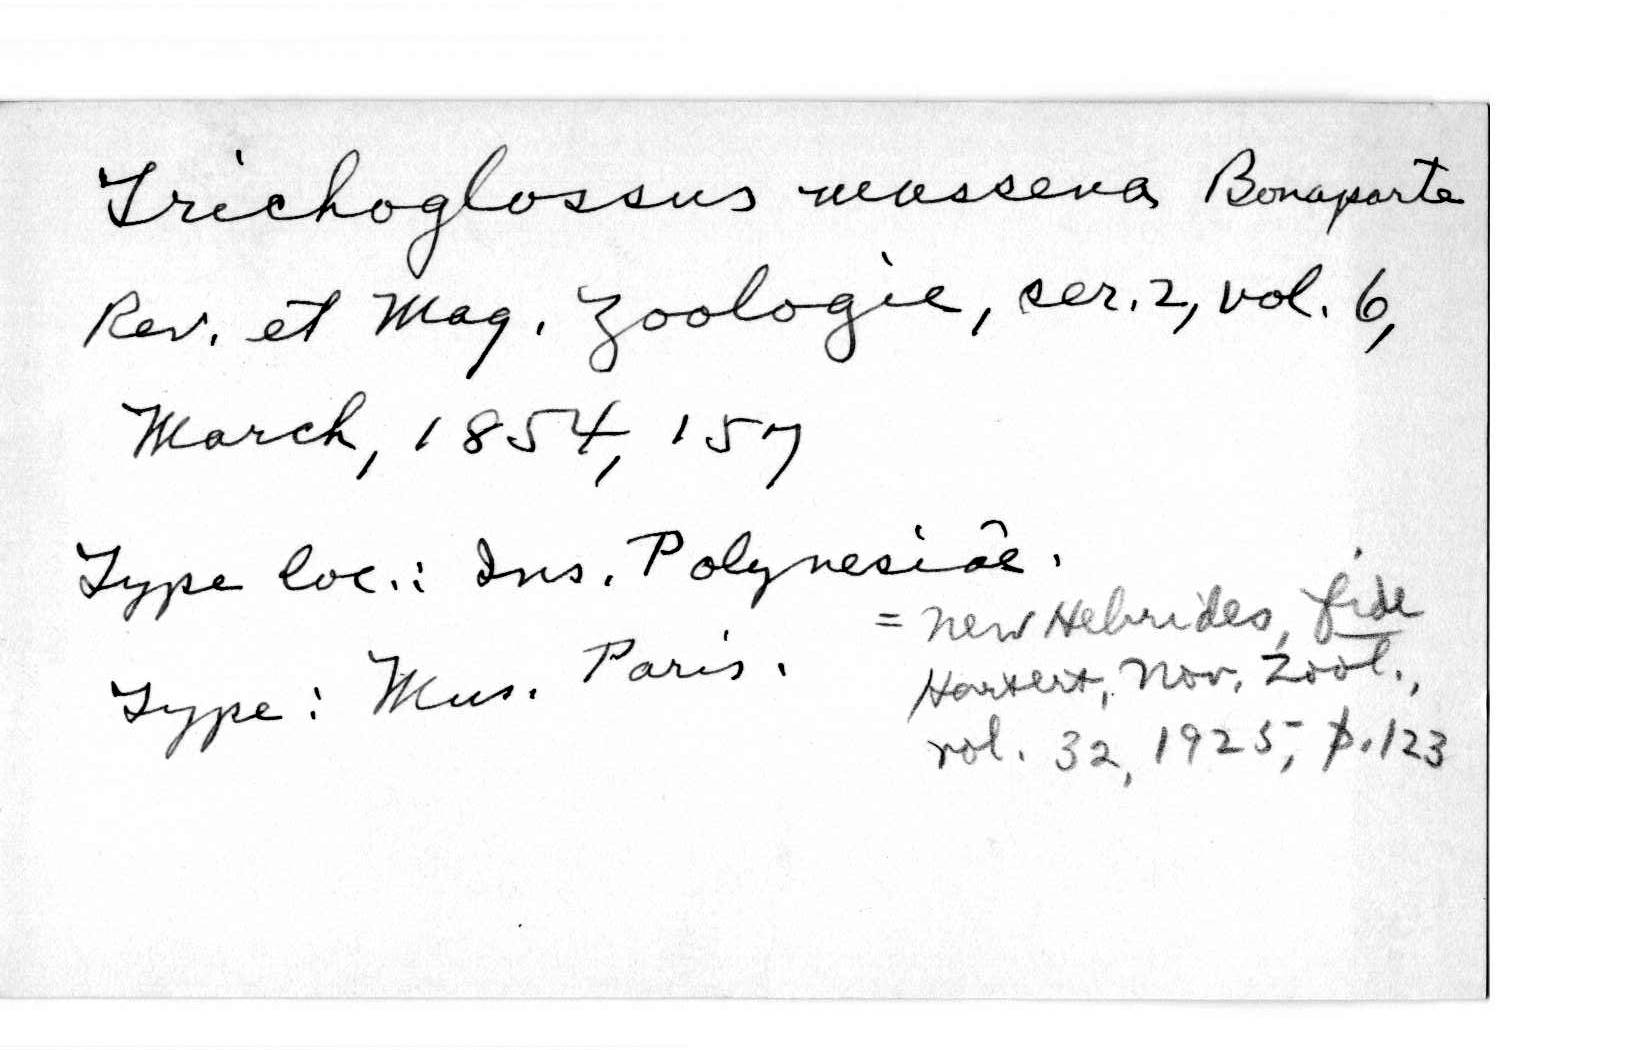 Trichoglossus massena Bonaparte
Rev. et Mag. Zoologie, ser. 2, vol. 6,
March, 1854, 157
Type loc.: Ins. Polynesiae.
= New Hebrides, fide
Hartert, Nov. Zool.,
vol. 32, 1925, p. 123
Type: Mus. Paris.